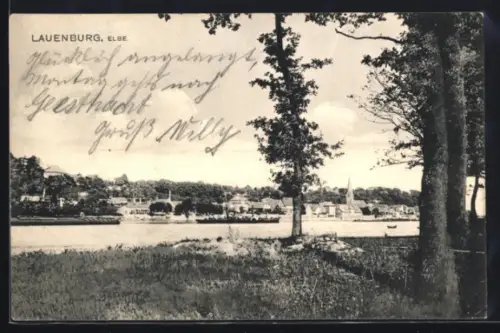 LAUENBURG, ELBE.
Glücklich angelangt,
Montag geht's nach
Geesthacht
Gruß Willy